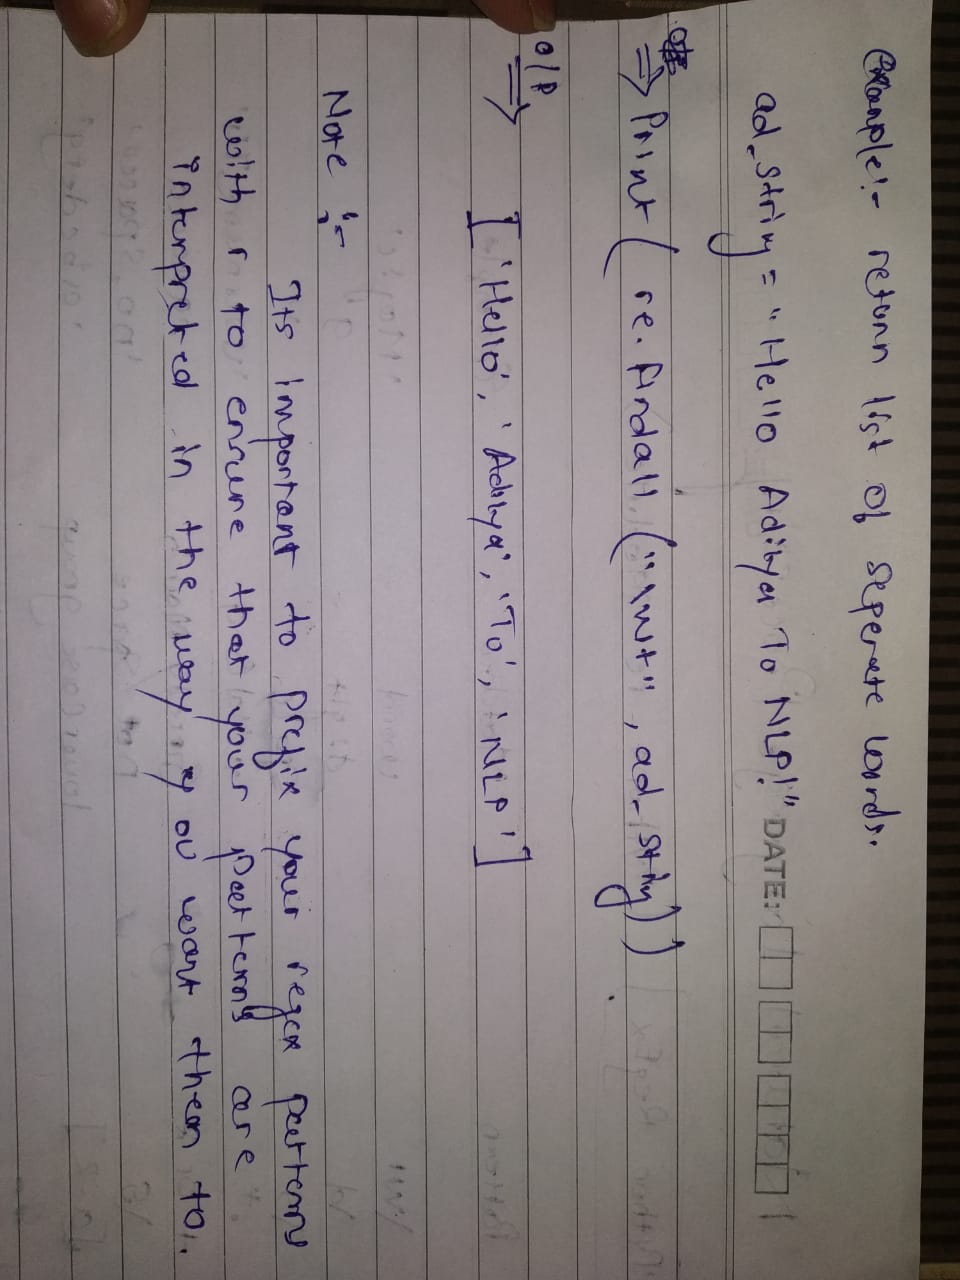 Example:- return list of seperate words.
ad_string = "Hello Aditya To NLP!" DATE:
⇒ Print ( re.findall ("\w+" , ad_string))
O/P
⇒ ['Hello', 'Aditya', 'To', 'NLP']
Note :-
Its important to prefix your regex patterns
with r to ensure that your patterns are
interpreted in the way you want them to.